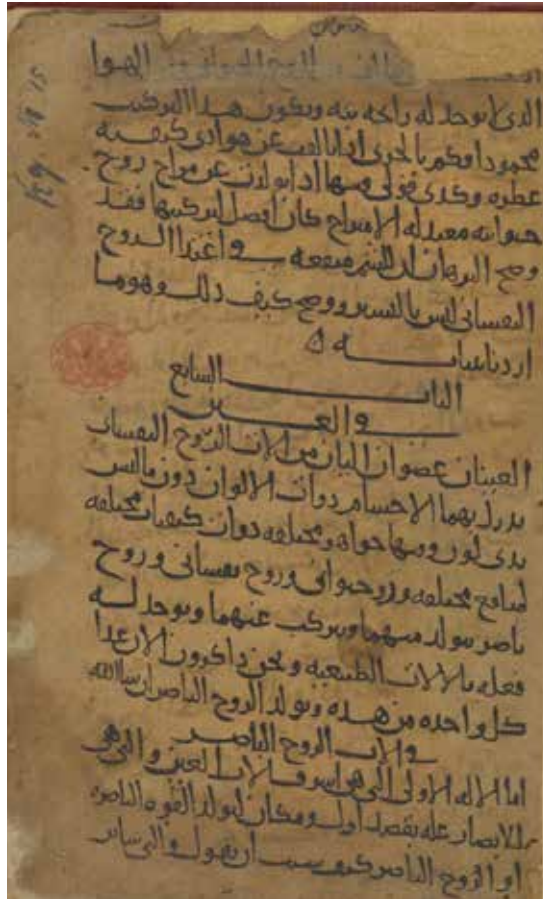 الهوا
الذى لا يوجد له رائحه بته ويكون هذا التركيب
محمودا وكم بالحرى اذا تالفت عن هوا ذى كيفيه
عطره وكذى قولى ومنها اذا تولدت عن مزاج روح
حيوانيه معتدله الامتزاج كان افضل لتركيبها فقد
وضح البرهان ان للشم منفعه فى اغتذا الروح
النفسانى ليس باليسير ووضح كيف ذلك وهو ما
اردنا بيانه
الباب السابع
فى العين
العينان عضوان اليان من الات الروح النفسانى
يدرك بهما الاجسام ذوات الالوان دون ما ليس
بذى لون ومنها حواه ومختلفه ذوات كيفيات مختلفه
لمنافع مختلفه وروح حيوانى وروح نفسانى وروح
باصر يتولد منهما ويتركب عنهما ويوجد له
فعله بالالات الطبيعيه ونحن ذاكرون الان غذا
كل واحده من هذه وتولد الروح الباصر ان شا الله
فى الات الروح الباصر
اما الاله الاولى التى هى اشرف الات العين والتى هى
للابصار عله بقصد اول ومكان لتولد القوه الباصره
او الروح الباصر كيف يجب ان نقول والتى ساير